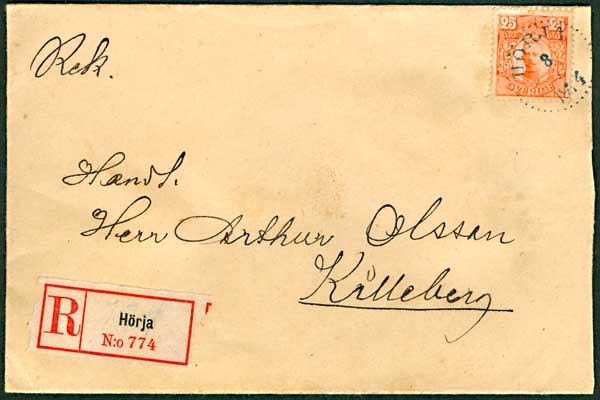 Rek.
25 25
SVERIGE
HÖRJA
8
14
Handl.
Herr Arthur Olsson
Killeberg
R
Hörja
N:o 774